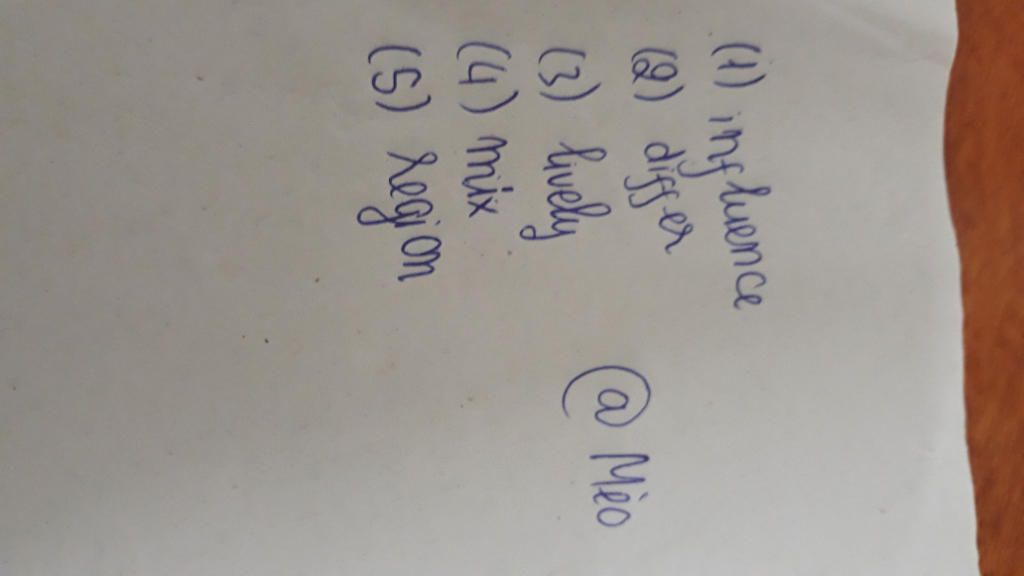 (1) influence
(2) differ
(3) lively
(4) mix
(5) region
@ Mèo